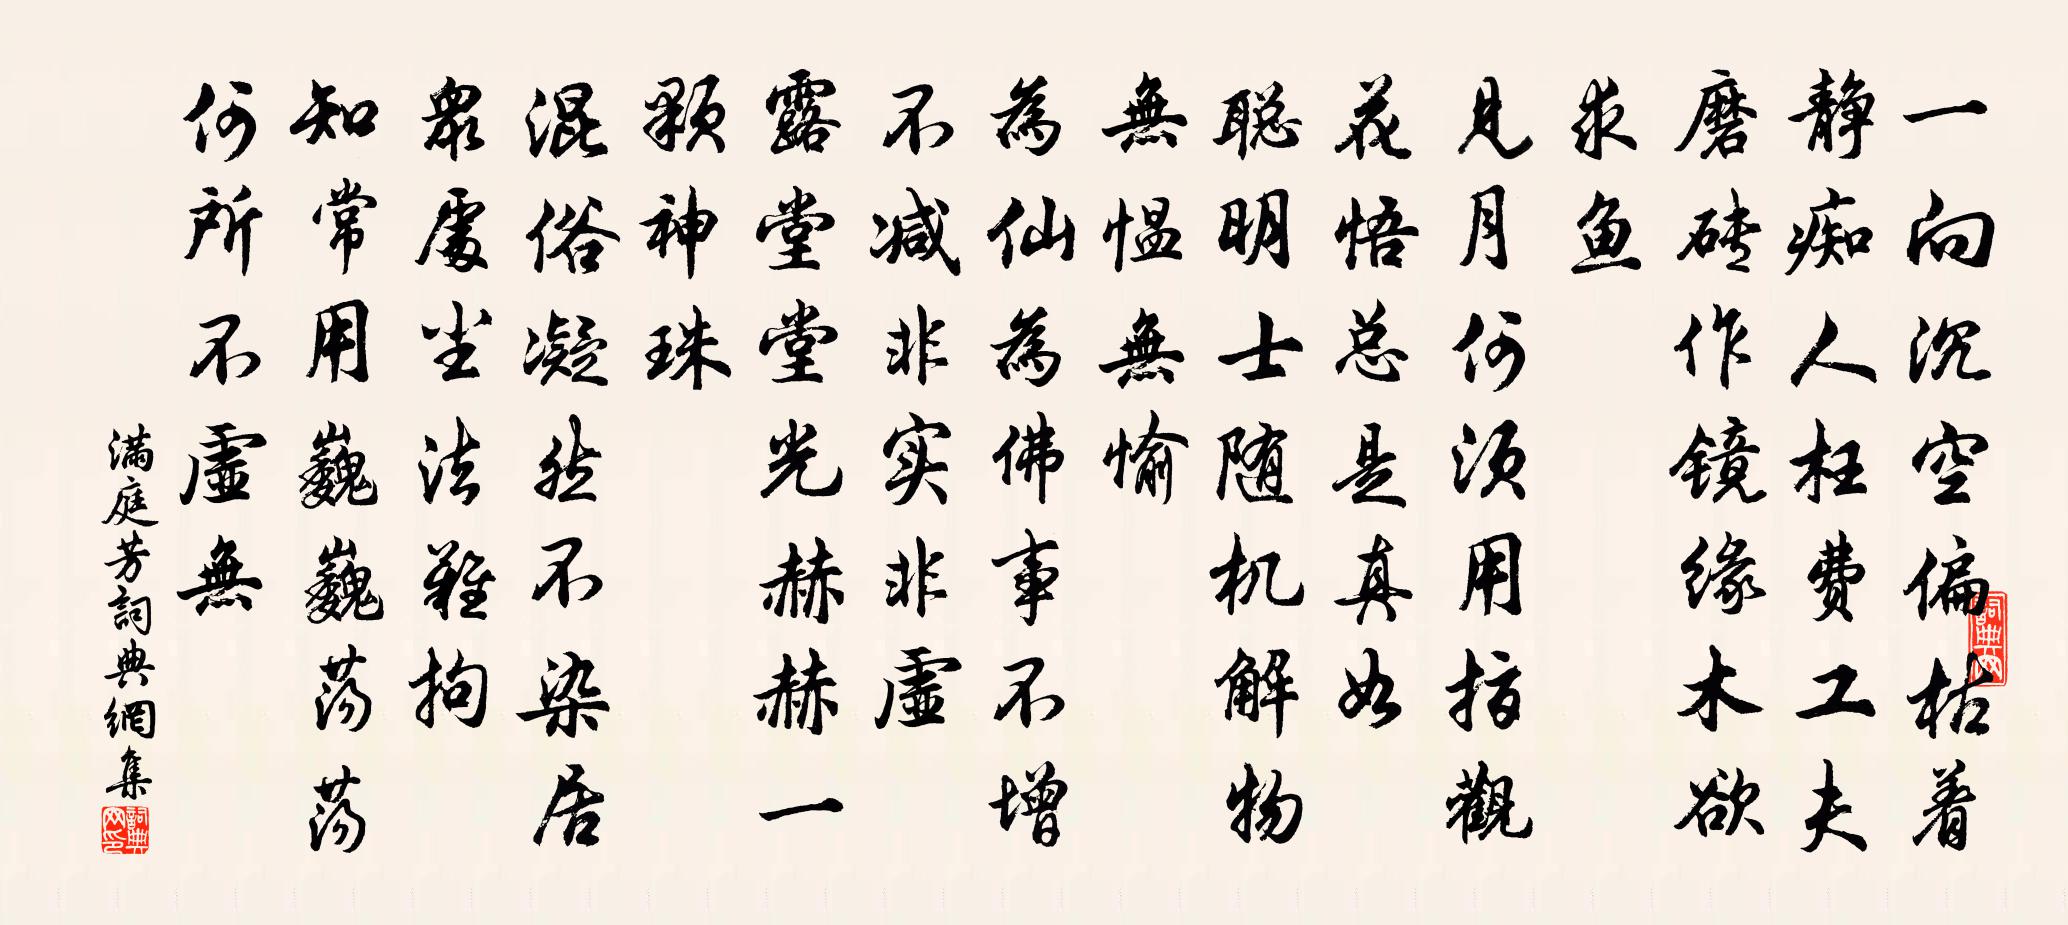 一向沉空偏枯着
静痴人枉费工夫
磨砖作镜缘木欲
求鱼
见月何须用指觀
花悟总是真如
聪明士随机解物
無愠無愉
為仙為佛事不增
不减非实非虚
露堂堂堂光赫赫一
颗神珠
混俗凝然不染居
眾處尘法難拘
知常用巍巍荡荡
何所不虚無
满庭芳詞典網集
詞典网
詞典网印